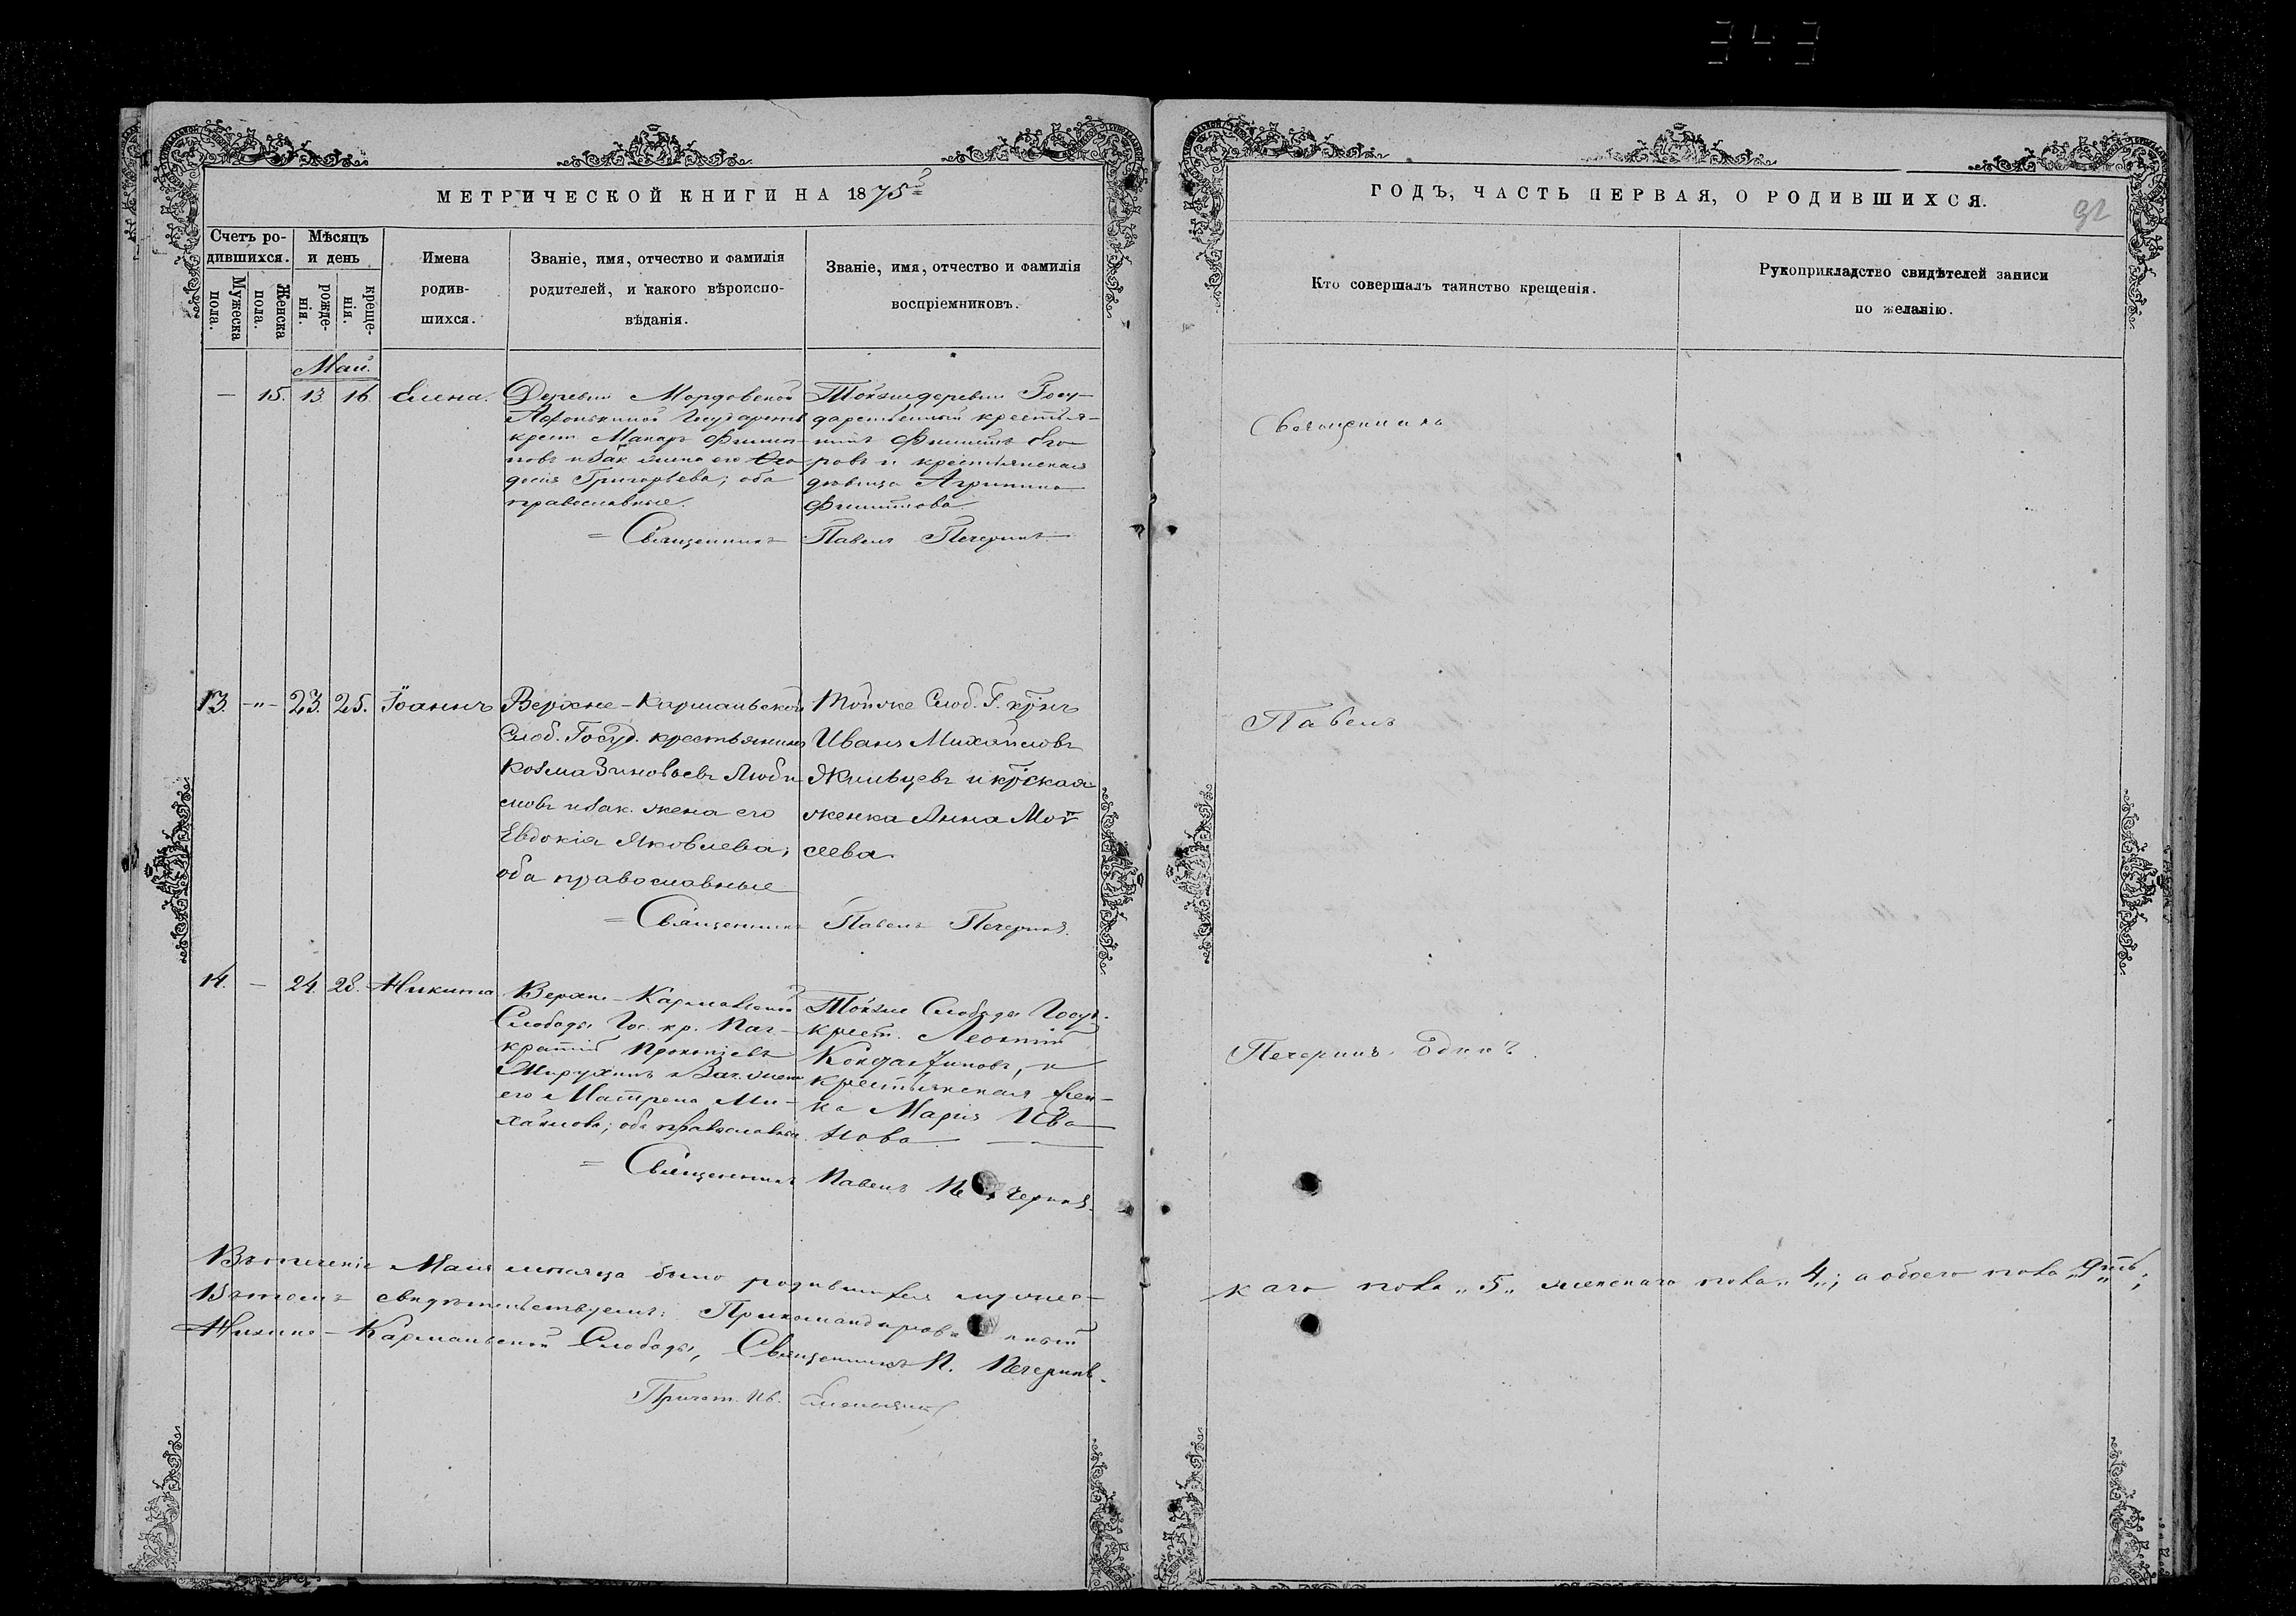 343
МЕТРИЧЕСКОЙ КНИГИ НА 1875
ГОДЪ, ЧАСТЬ ПЕРВАЯ, О РОДИВШИХСЯ.
92
Счетъ ро-
дившихся.
Мужеска
пола.
Женска
пола.
Мѣсяцъ
и день
рожде-
нія.
креще-
нія.
Имена
родив-
шихся.
Званіе, имя, отчество и фамилія
родителей, и какого вѣроиспо-
вѣданія.
Званіе, имя, отчество и фамилія
воспріемниковъ.
Кто совершалъ таинство крещенія.
Рукоприкладство свидѣтелей записи
по желанію.
Май.
— 15. 13. 16. Елена.
Деревни Мордовской
Афонькиной Государств
крест. Макаръ Филип-
повъ и зак. жена его Фео
досія Григорьева; оба
православные.
Тойже деревни Госу-
дарственный крестья-
нинъ Филиппъ
ровъ и крестьянская
дѣвица Агрипина
Филиппова
= Священникъ Павелъ Печеринъ
Священникъ
13. -"- 23. 25. Іоаннъ
Верхне-Кармальской
Слоб. Госуд. крестьянинъ
Козма Зиновьевъ Люби
мовъ и зак. жена его
Евдокія Яковлева;
оба православные
Тойже Слоб. Г. кр͠нъ
Иванъ Михайловъ
Жильцевъ и кр͠ская
женка Анна Мой
сеева
= Священникъ Павелъ Печеринъ.
Павелъ
14. — 24. 28. Никита
Верхне-Кармальской
Слободы Гос. кр. Пан-
кратій Прокопіевъ
и Зак. жена
его Матрена Ми-
хайлова; оба православные.
Тойже Слободы Госуд.
крест. Леонтій
Константиновъ, и
крестьянская жен-
ка Марія Ива
нова
= Священникъ Павелъ Печеринъ.
Печеринъ. Одинъ.
Въ теченіе Маія мѣсяца было родившихся мужес-
каго пола „5„ женскаго пола „4„; а обоего пола „9„ть;
Въ томъ свидѣтельствуемъ: Прикомандированный
Нижне-Кармальской Слободы, Священникъ П. Печеринъ.
Причет. Ив.